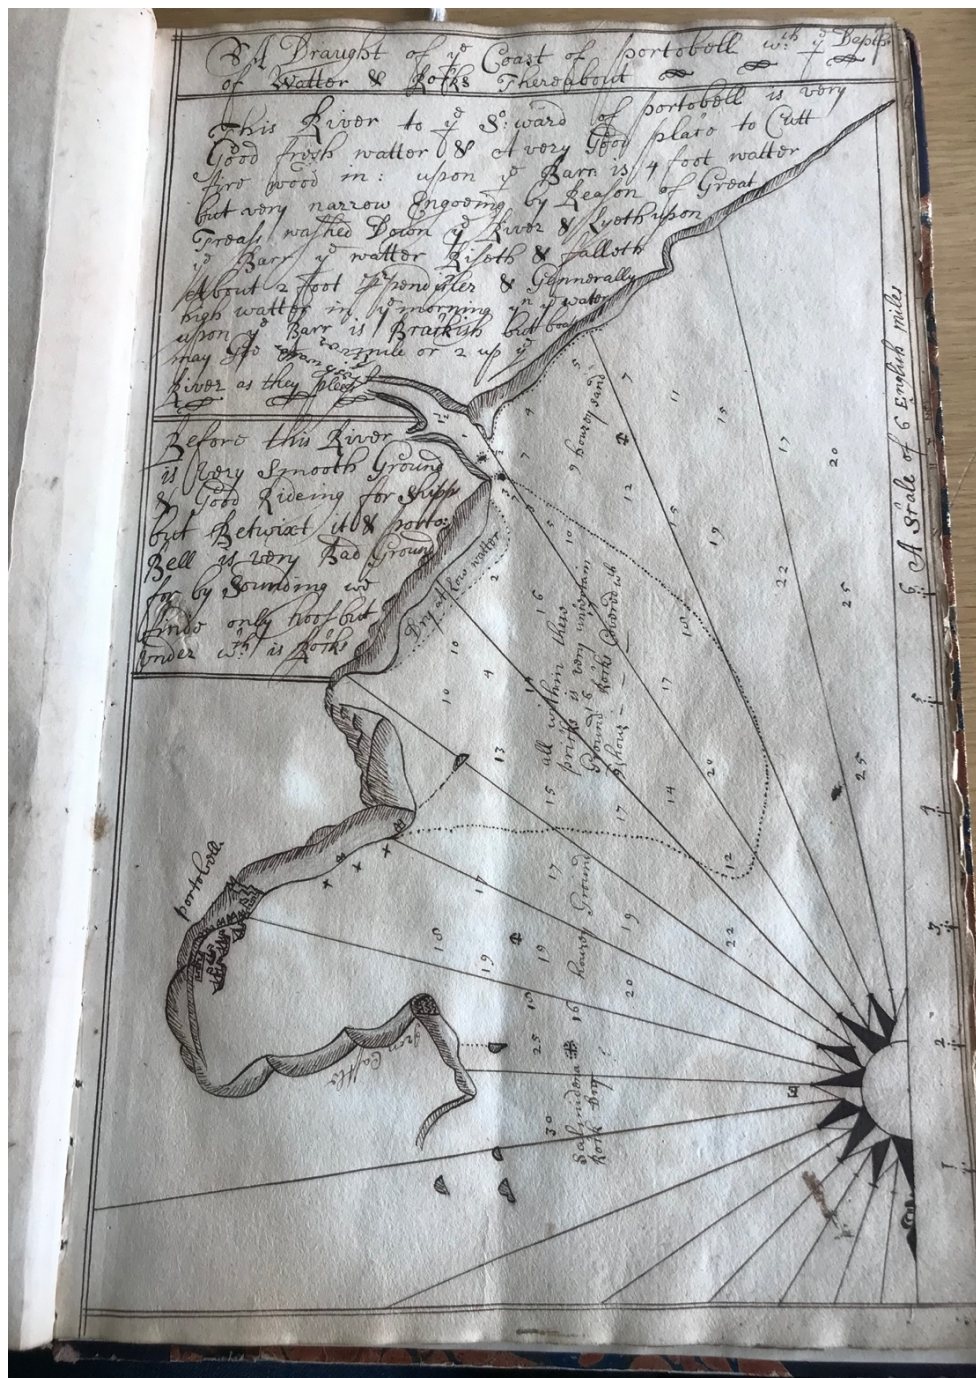 A Draught of yᵉ Coast of portobell wᵗʰ yᵉ Depth
of Watter & Rocks Thereabout
This River to yᵉ So:ward of portobell is very
Good fresh watter & A very Good place to Cutt
fire wood in: upon yᵉ Barr is 4 foot watter
but very narrow Ingoeing by Reason of Great
Treass washed Down yᵉ River & Lyeth upon
yᵉ Barr yᵉ watter Riseth & falleth
About 2 foot & Gennerally
high watter in yᵉ morning yⁿ yᵉ water
upon yᵉ Barr is Brackish but boats
may Goe mile or 2 up yᵉ
River as they pleas
Before this River
is very Smooth Ground
& Good Rideing for Shipp
but Betwixt it & porto:
Bell is very Bad Ground
for by Sounding we
finde only but
under wᶜʰ is Rocks
Dry at Low watter
9 sand
all within these
pricks is very uncertain
Ground Rocks Covered with
portobell
Ground
Iron Castle
Salmidena
Rock Dry
A Scale of 6 English miles
6
5
4
3
2
1
5
7
11
15
17
20
12
15
19
22
25
10
18
16
17
20
25
10
4
10
13
15
17
14
12
17
17
19
22
18
19
19
20
16
25
30